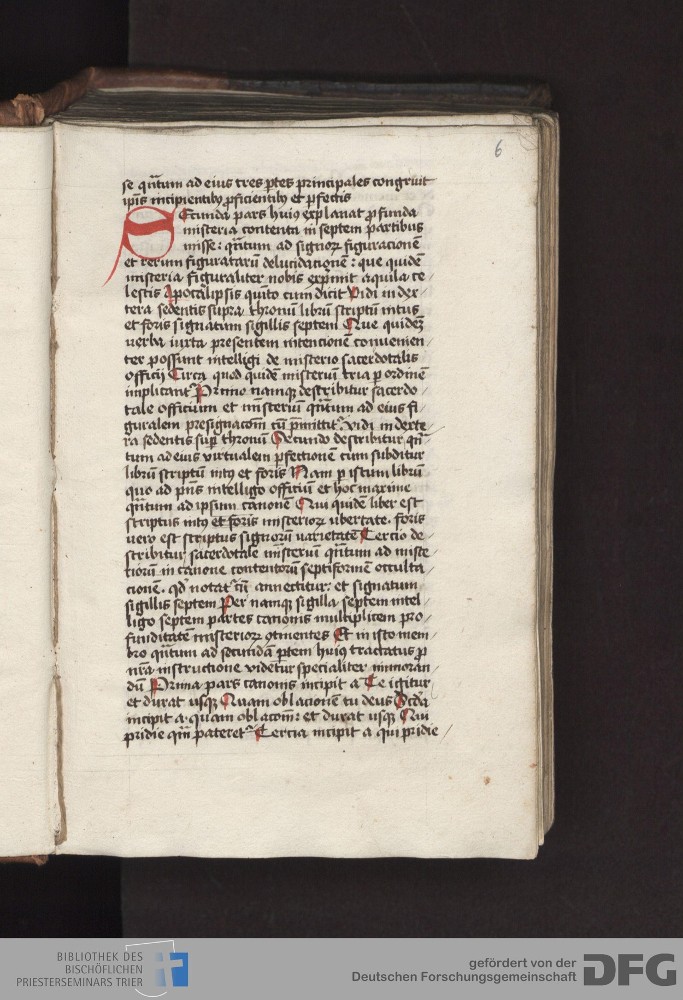 6
se quātum ad eius tres ptes principales congruit
ipīs incipientibꝫ proficientibꝫ et perfectis
Secunda pars huiꝰ explanat profunda
misteria contenta in septem partibus
misse: quātum ad signorꝝ figuracionē
et rerum figuratarū delucidacionē: que quidē
misteria figuraliter nobis exprimit aquila ce/
lestis Apocalipsis quīto cum dicit Vidi in dex/
tera sedentis supra thronū librū scriptū intus
et foris signatum sigillis septem Que quidē
verba iuxta presentem intencionē convenien/
ter possunt intelligi de misterio sacerdotalis
officij Circa quod quidē misteriū tria per ordinē
implicantʳ Primo namqꝫ describitur sacerdo
tale officium et misteriū quātum ad eius fi/
guralem presignacōem cū pmittitʳ vidi in dexte/
ra sedentis supra thronū Secundo describitur quā
tum ad eius virtualem pfectionē cum subditur
librū scriptū intꝰ et foris Nam per istum librū
quo ad pñs intelligo officiū et hoc maxime
quātum ad ipsum canonē Qui quidē liber est
scriptus intꝰ et foris misteriorꝝ ubertate. foris
vero est scriptus signorū varietate Tercio de/
scribitur sacerdotale misteriū quātum ad miste/
riorū in canone contentorū septiformē occulta/
cionē. qd notatʳ cū annectitur: et signatum
sigillis septem Per namqꝫ sigilla septem intel/
ligo septem partes canonis multiplicem pro/
funditatē misteriorꝝ ꝯtinentes Et in isto mem/
bro quātum ad secundā ptem huiꝰ tractatus p
nrā instructione videtur specialiter memoran/
dū Prima pars canonis incipit a Te igitur
et durat usqꝫ Quam oblacionem tu deus Scda
incipit a. quam oblacōem: et durat usqꝫ Qui
pridie qm pateretʳ Tercia incipit a qui pridie/
BIBLIOTHEK DES
BISCHÖFLICHEN
PRIESTERSEMINARS TRIER
gefördert von der
Deutschen Forschungsgemeinschaft
DFG